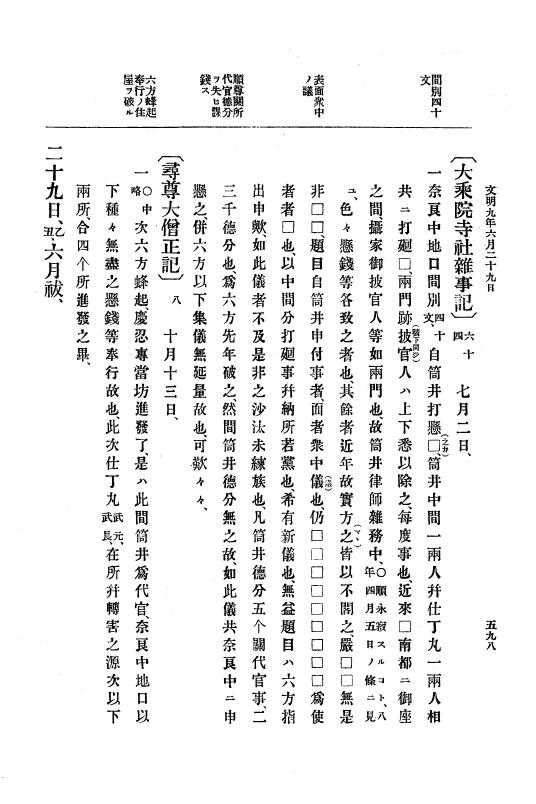 文明九年六月二十九日
五九八
間別四十
文
表面衆中
ノ議
順尊關所
代官德分
ヲ失ヒ課
錢ス
六方蜂起
奉行ノ住
屋ヲ破ル
〔大乘院寺社雜事記〕 六十四 七月二日、
一奈良中地口間別四十文、自筒井打懸□(之カ)、筒井中間一兩人幷仕丁丸一兩人相
共ニ打廻□、兩門跡披官人(被下同ジ)ハ上下悉以除之、每度事也、近來□南都ニ御座
之間、攝家御披官人等如兩門也、故筒井律師雜務中、○順永寂スルコト、八年四月五日ノ條ニ見
ユ、色々懸錢等各致之者也、其餘者近年故實方之(マヽ)皆以不開之、嚴□□無是
非□□、題目自筒井申付事者、面者衆中儀(議)也、仍□□□□□□□□□爲使
者者□也、以中間分打廻事幷納所若黨也、希有新儀也、無益題目ハ六方指
出申歟、如此儀者不及是非之沙汰未練族也、凡筒井德分五个關代官事、二
三千德分也、爲六方先年破之、然間筒井德分無之故、如此儀共奈良中ニ申
懸之、併六方以下集儀無延量故也、可歎々々、
〔尋尊大僧正記〕 八 十月十三日、
一○中略 次六方蜂起、慶忍專當坊進發了、是ハ此間筒井爲代官奈良中地口以
下種々無盡之懸錢等奉行故也、此次仕丁丸武元、武長、在所幷轉害之源次以下
兩所、合四个所進發之畢、
二十九日、乙丑、六月祓、